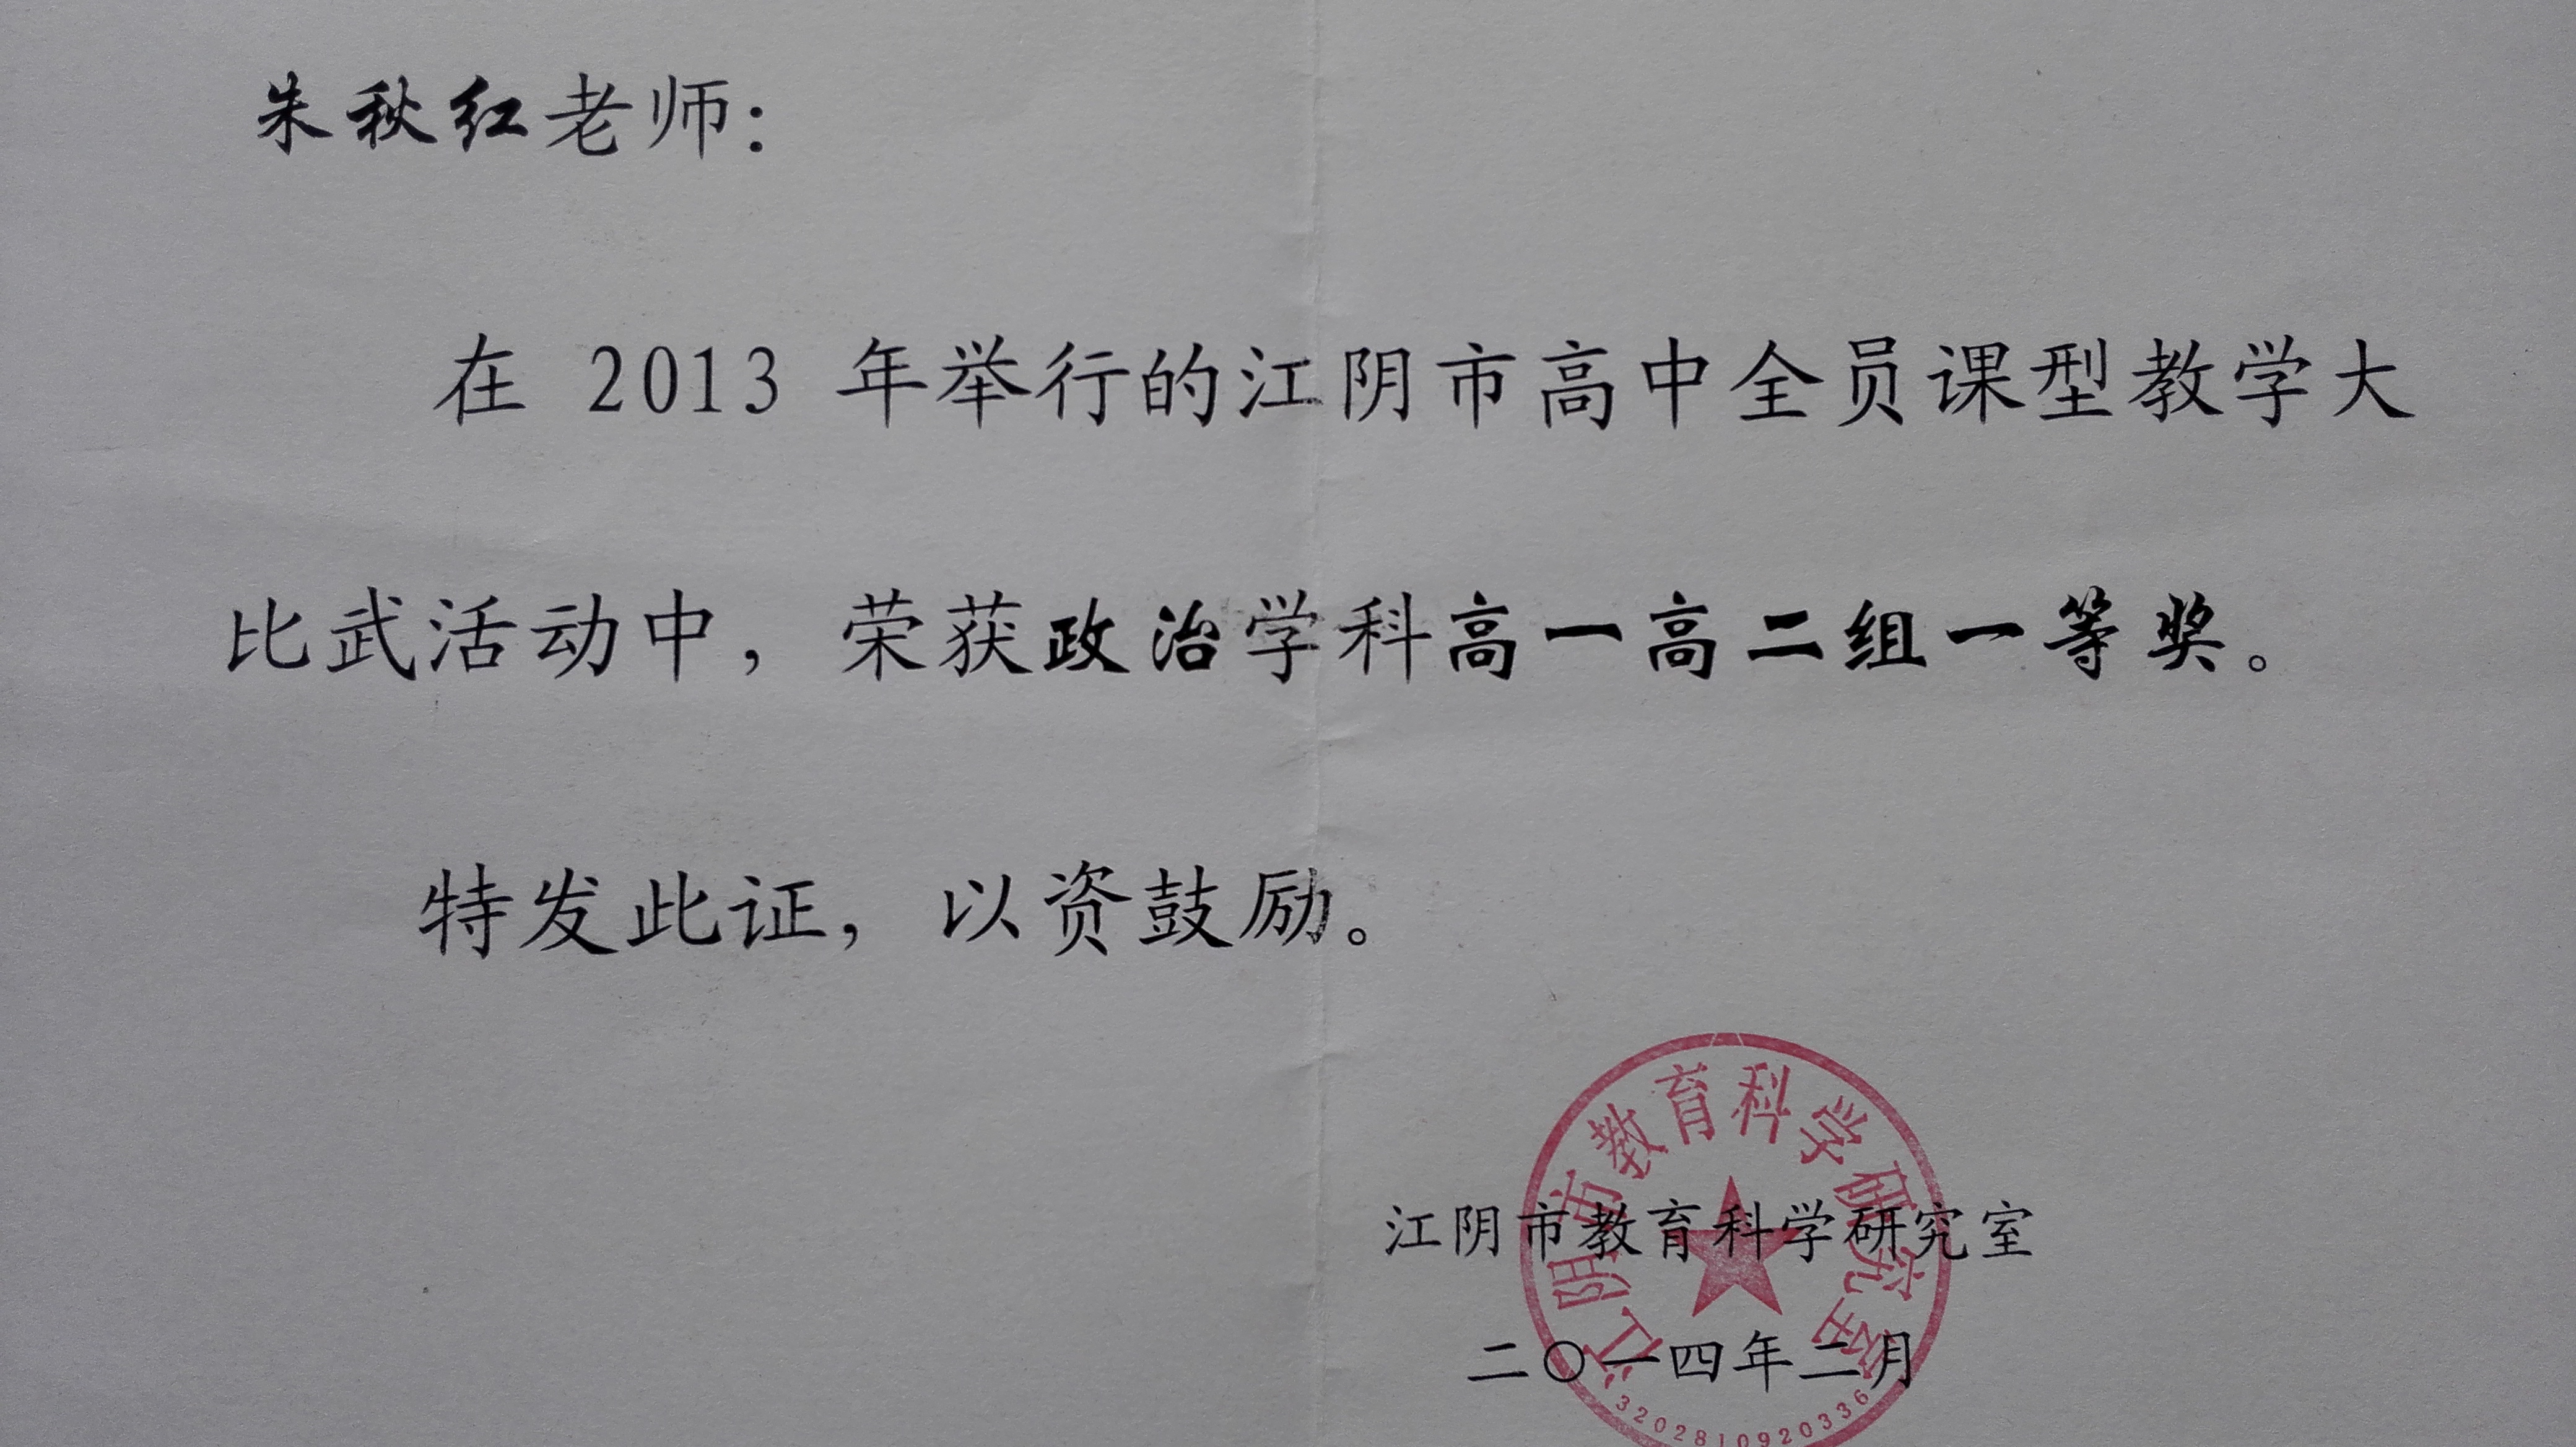 朱秋红老师：
在 2013 年举行的江阴市高中全员课型教学大
比武活动中，荣获政治学科高一高二组一等奖。
特发此证，以资鼓励。
江阴市教育科学研究室
江阴市教育科学研究室
二〇一四年二月
3202810920336